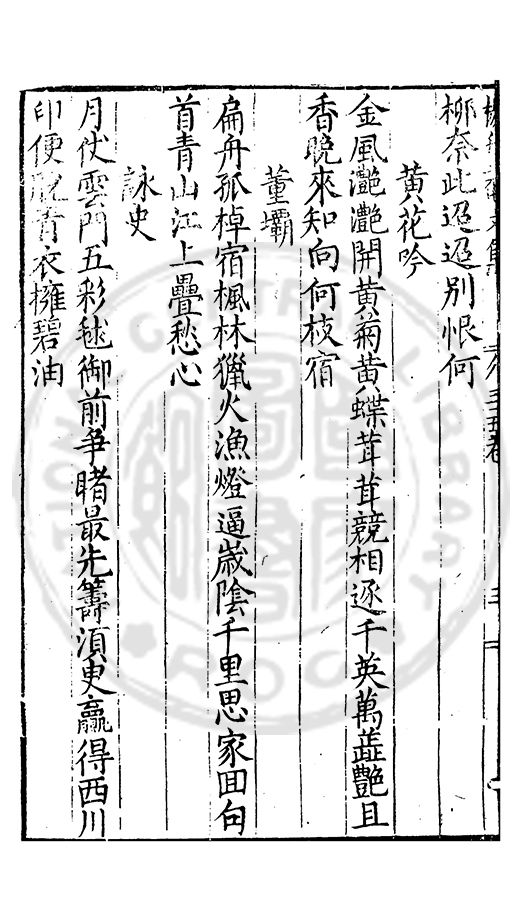 柳奈此迢迢別恨何
黃花吟
金風灧灧開黃菊黃蝶茸茸競相逐千英萬蘂艷且
香晚來知向何枝宿
董壩
扁舟孤棹宿楓林獵火漁燈逼歲陰千里思家回向
首青山江上疊愁心
詠史
月伏雲門五彩毬御前爭賭最先籌須臾贏得西川
印便脫青衣擁碧油